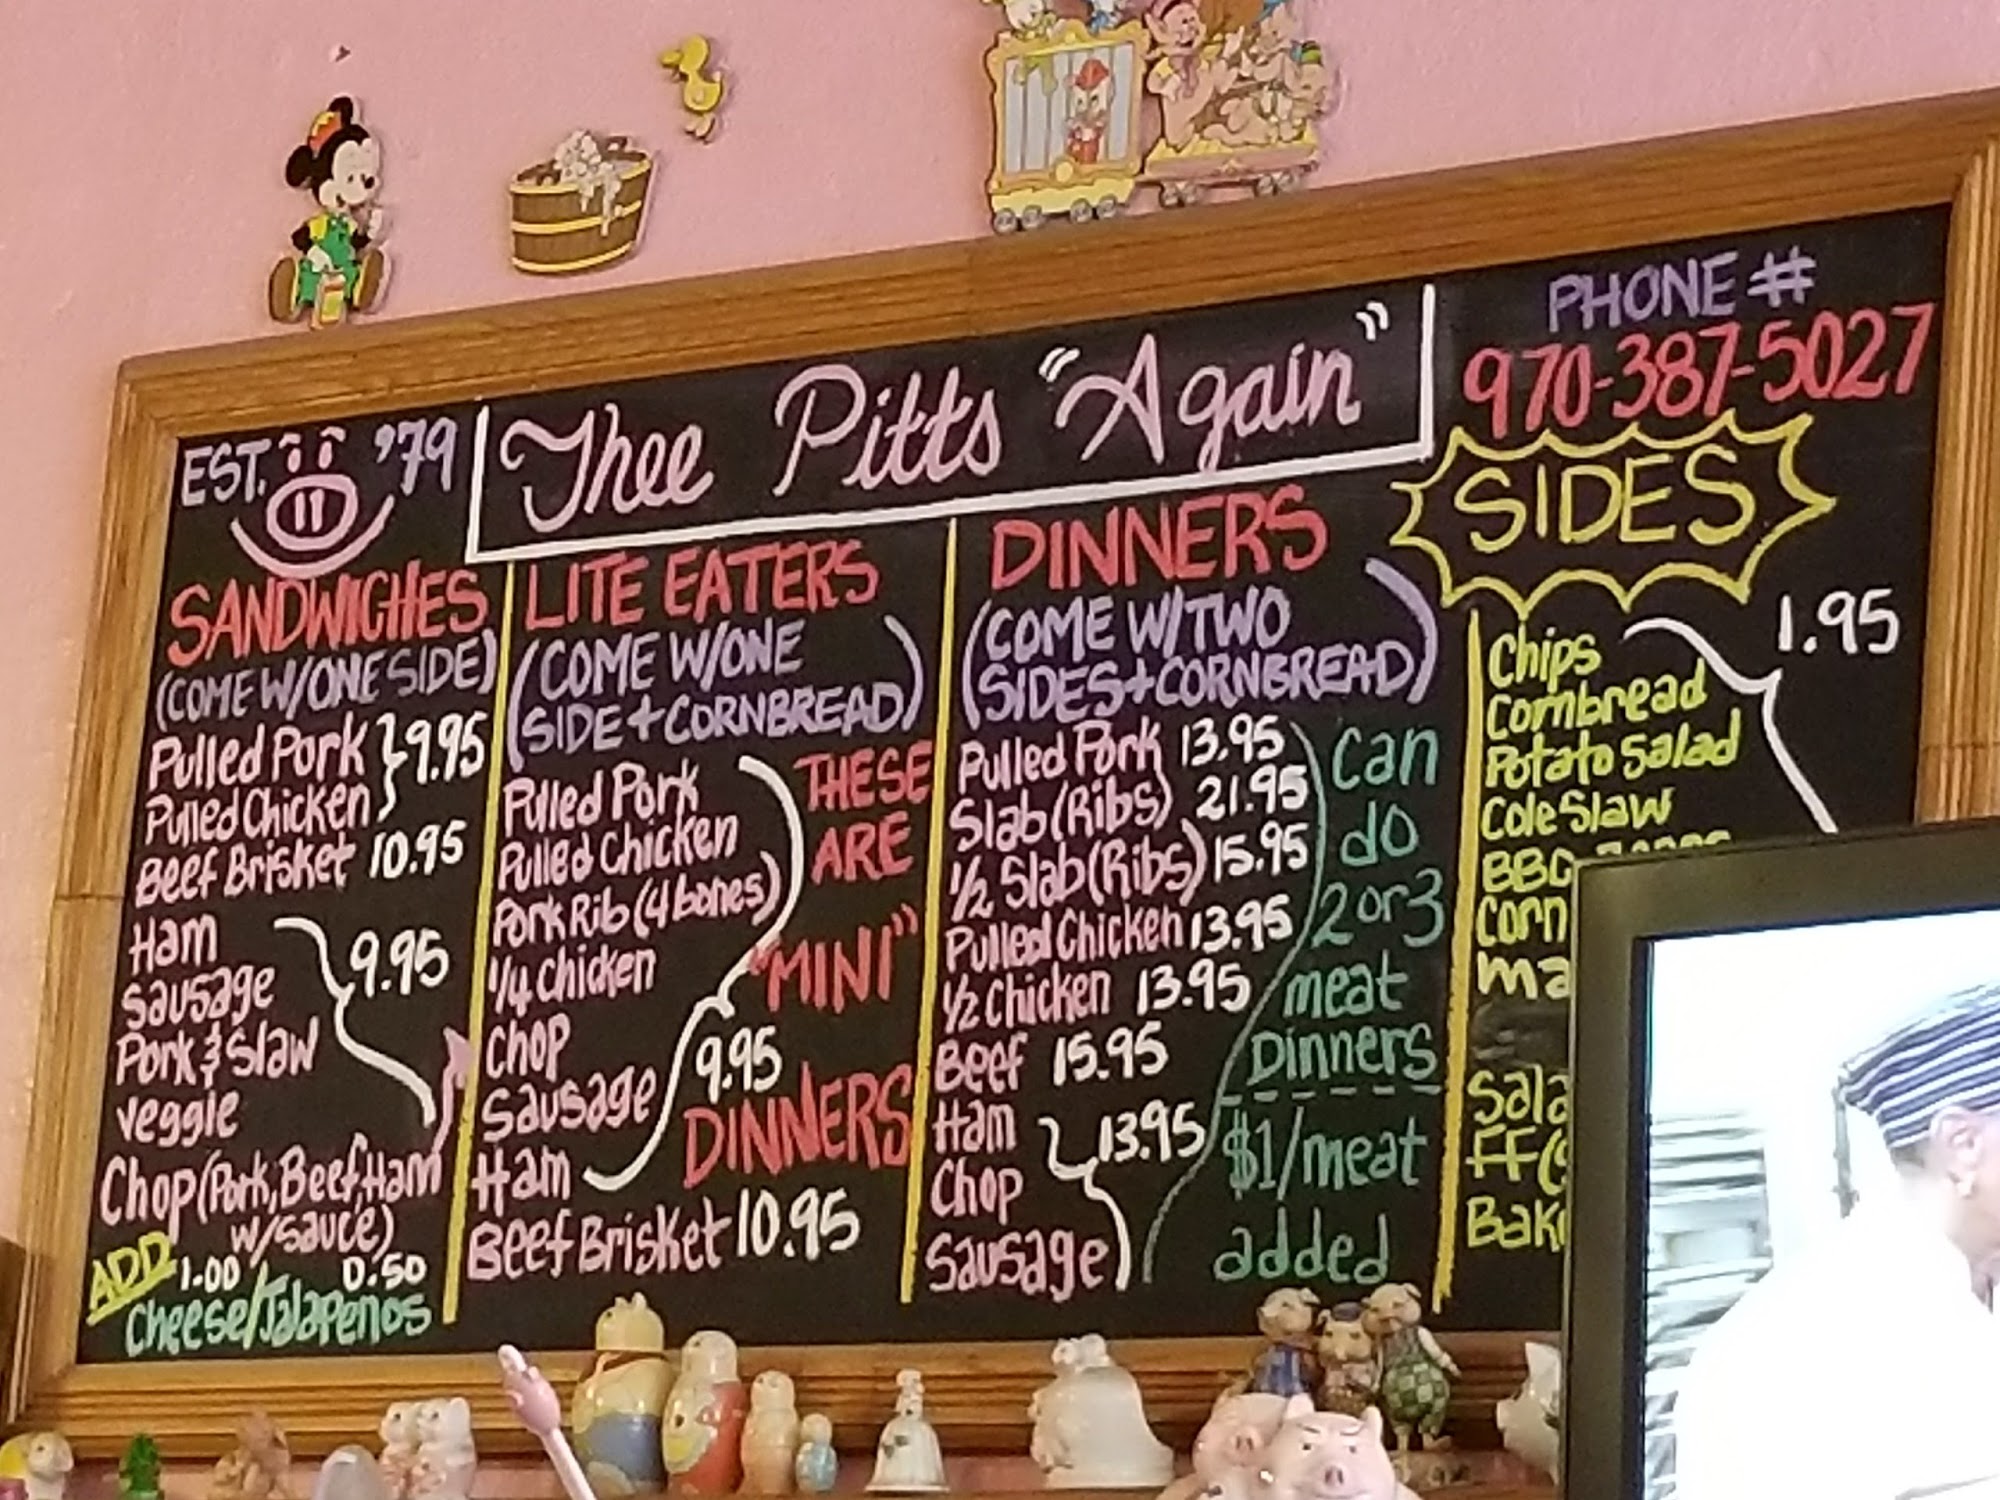 EST. '79
Thee Pitts "Again"
PHONE #
970-387-5027
SANDWICHES
(COME W/ONE SIDE)
Pulled Pork
Pulled Chicken
9.95
Beef Brisket 10.95
Ham
Sausage
Pork & Slaw
Veggie
9.95
Chop (Pork, Beef, Ham
w/sauce)
ADD 1.00 0.50
Cheese/Jalapenos
LITE EATERS
(COME W/ONE
SIDE + CORNBREAD)
Pulled Pork
Pulled Chicken
Pork Rib (4 bones)
1/4 Chicken
Chop
Sausage
Ham
9.95
Beef Brisket 10.95
THESE
ARE
"MINI"
DINNERS
DINNERS
(COME W/TWO
SIDES + CORNBREAD)
Pulled Pork 13.95
Slab (Ribs) 21.95
1/2 Slab (Ribs) 15.95
Pulled Chicken 13.95
1/2 Chicken 13.95
Beef 15.95
Ham
Chop
Sausage
13.95
can
do
2 or 3
meat
Dinners
$1/meat
added
SIDES
1.95
Chips
Cornbread
Potato Salad
Cole Slaw
BBQ
Corn